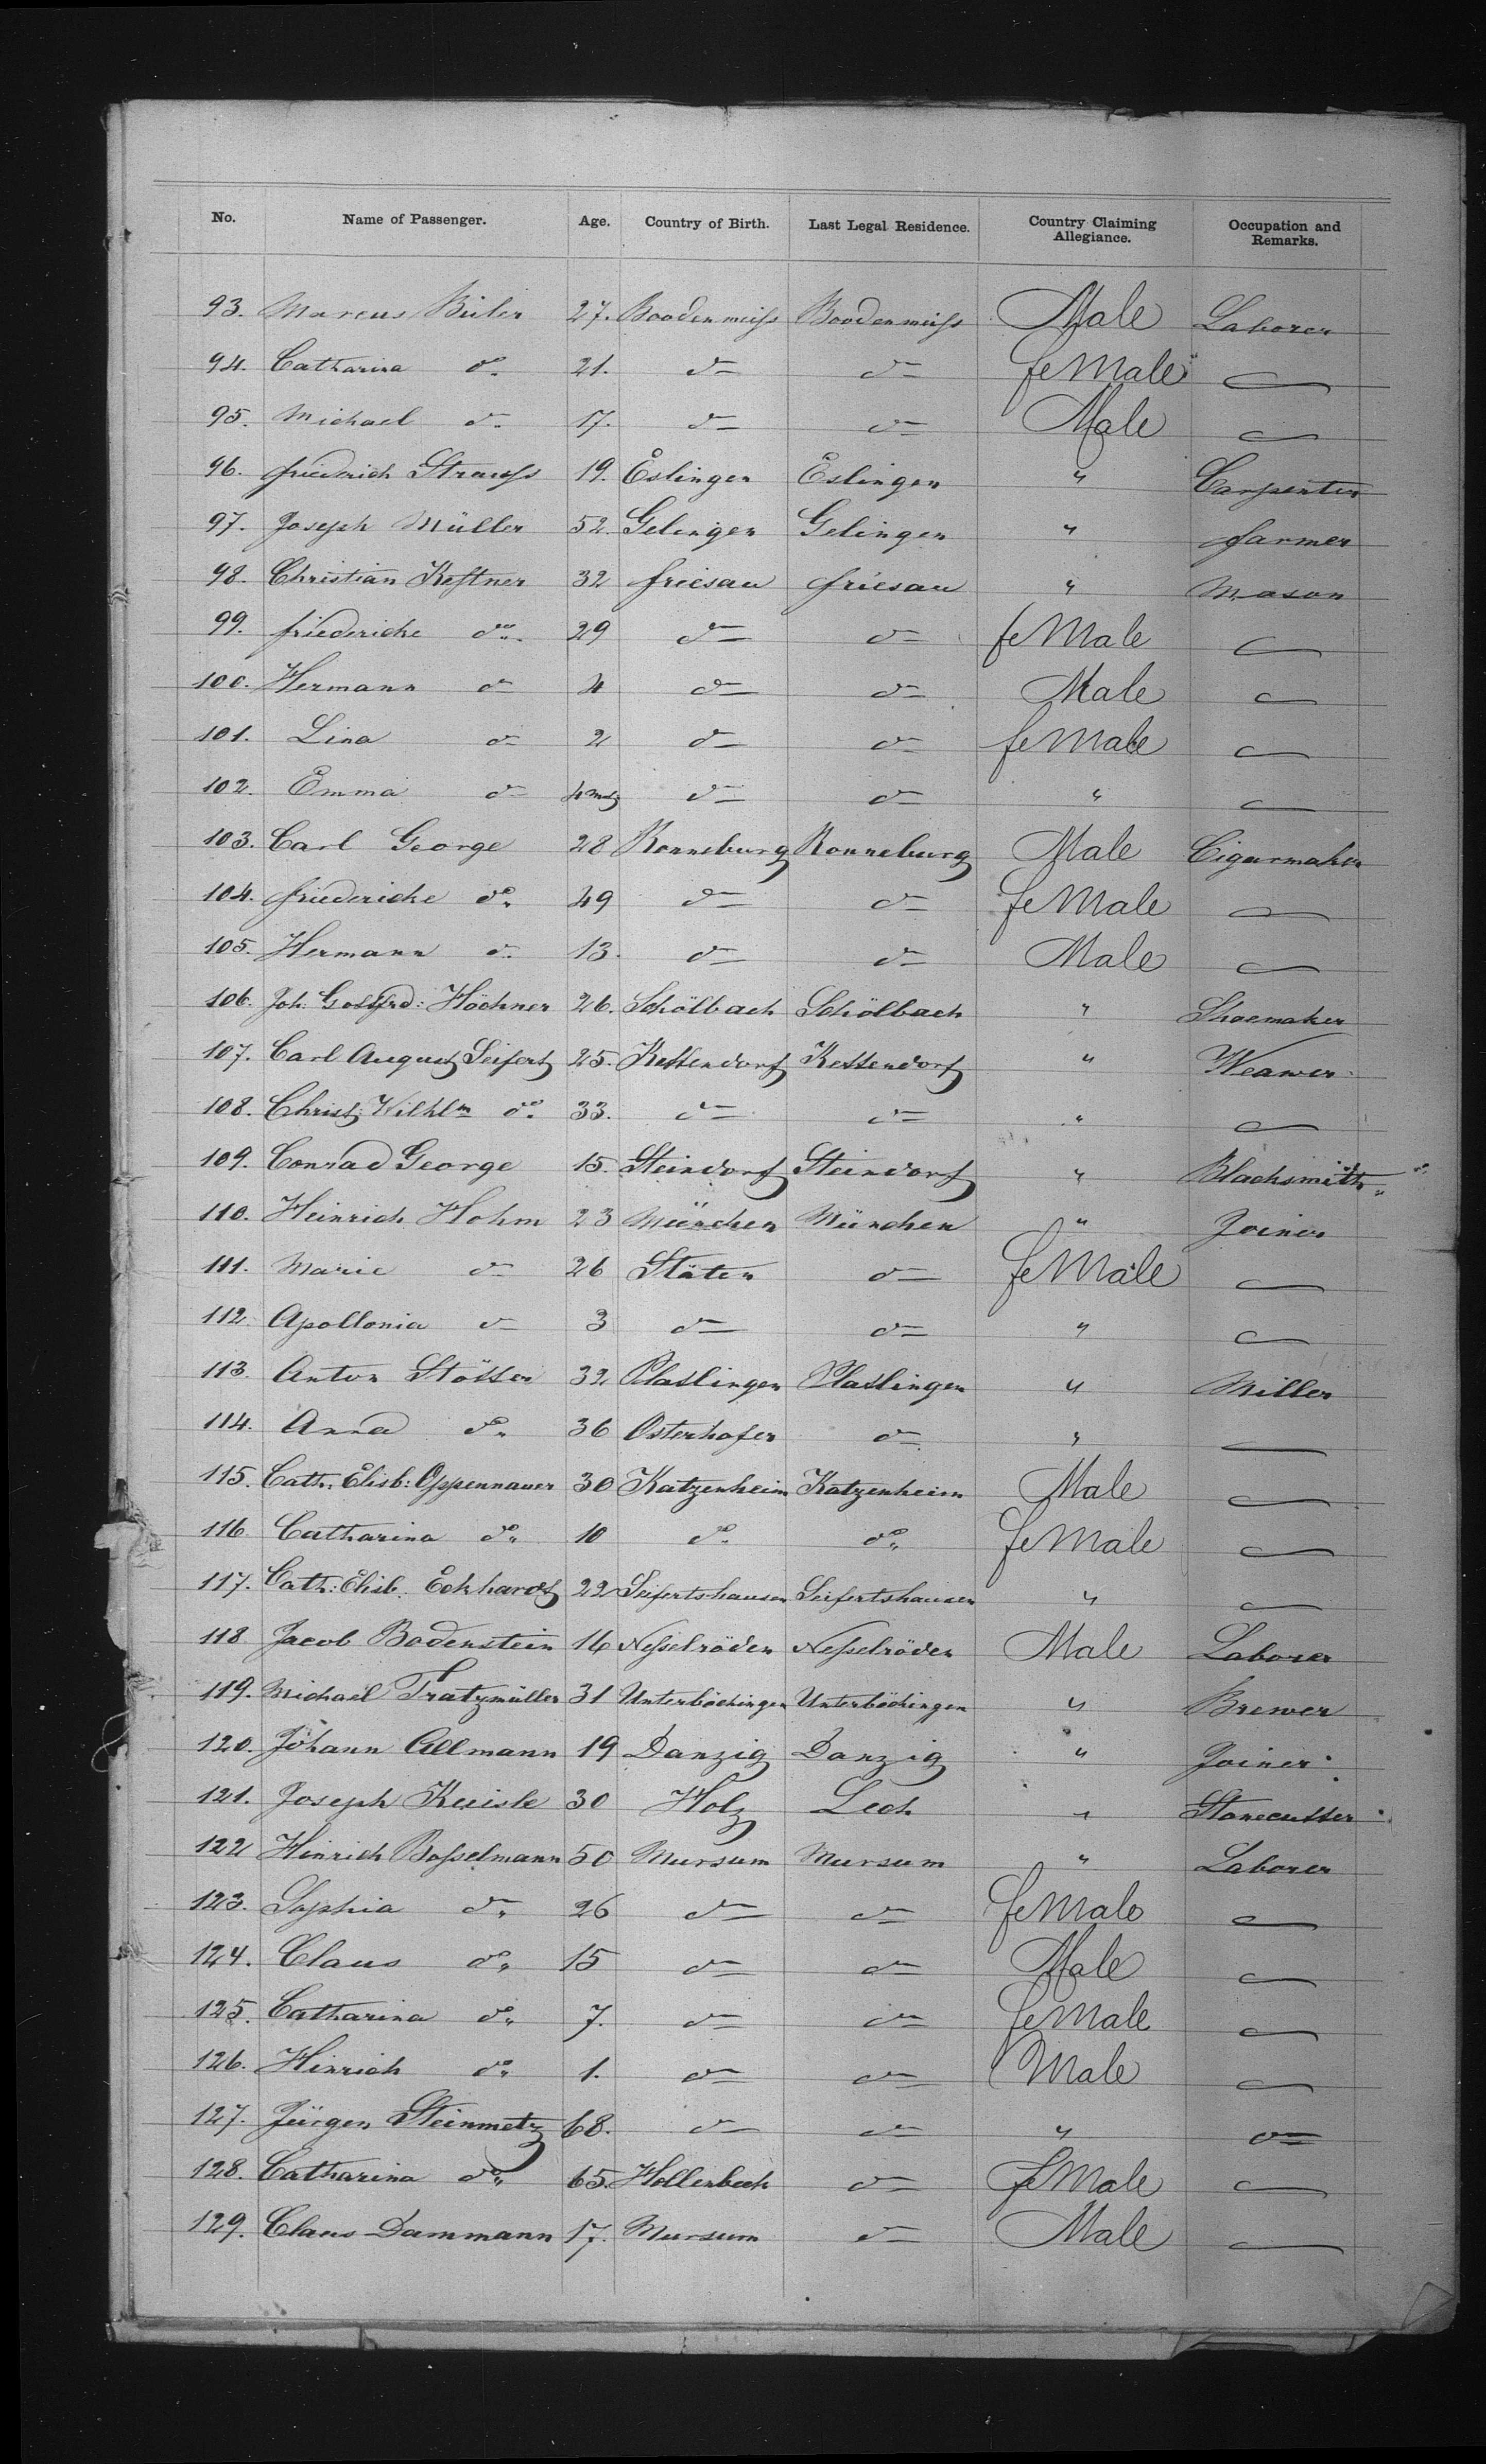 No. Name of Passenger. Age. Country of Birth. Last Legal Residence. Country Claiming Allegiance. Occupation and Remarks.
93. Marcus Büler 27. Boodenmeiss Boodenmeiss Male Laborer
94. Catharina do 21. do do feMale —
95. Michael do 17. do do Male —
96. friederich Strauss 19. Eslingen Eslingen " Carpenter
97. Joseph Müller 52. Gelingen Gelingen " farmer
98. Christian Kestner 32 friesau friesau " Mason
99. friedericke do 29 do do feMale —
100. Hermann do 4 do do Male —
101. Lina do 2 do do feMale —
102. Emma do 4 mos do do " —
103. Carl George 28 Ronneburg Ronneburg Male Cigarmaker
104. friedericke do 49 do do feMale —
105. Hermann do 13. do do Male —
106. Joh. Gottfrd: Höchner 26. Schölbach Schölbach " Shoemaker
107. Carl August Seifert 25. Kettendorf Kettendorf " Weawer
108. Christ. Wilhlm do 33. do do " —
109. Conrad George 15. Steindorf Steindorf " Blacksmith
110. Heinrich Hohm 23 München München " Joiner
111. Marie do 26 Stäten do feMale —
112 Apollonia do 3 do do " —
113. Anton Stösser 32 Platlingen Platlingen " Miller
114. Anna do 36 Osterhofen do " —
115. Cath: Elisb: Oppennauer 30 Katzenheim Katzenheim Male —
116 Catharina do 10 do do feMale —
117. Cath: Elisb. Eckhardt 22 Seifertshausen Seifertshausen " —
118 Jacob Bodenstein 16 Nesselröden Nesselröden Male Laborer
119. Michael Tratzmüller 31 Unterböchingen Unterböchingen " Brewer
120. Johann Allmann 19 Danzig Danzig " Joiner
121. Joseph Keisle 30 Holz Lech " Stonecutter
122 Hinrich Bosselmann 50 Mursum Mursum " Laborer
123. Sophia do 26 do do feMale —
124. Claus do 15 do do Male —
125. Catharina do 7. do do feMale —
126. Hinrich do 1. do do Male —
127. Jürgen Steinmetz 68. do do " do
128. Catharina do 65. Hollenbeck do feMale —
129. Claus Dammann 17. Mursum do Male —